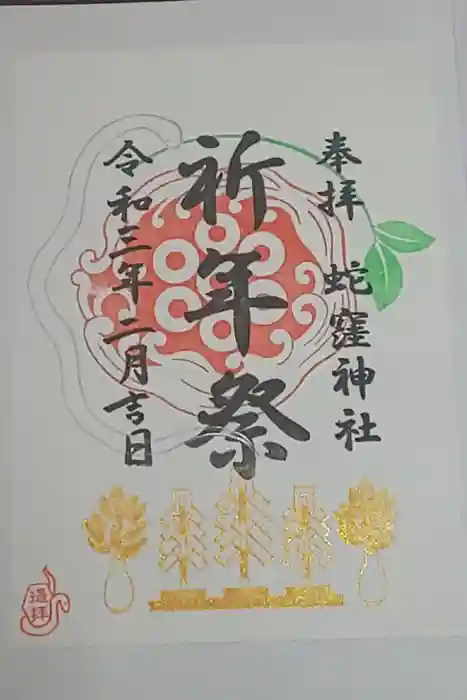 奉拝 蛇窪神社
祈年祭
令和三年二月吉日
遥拝